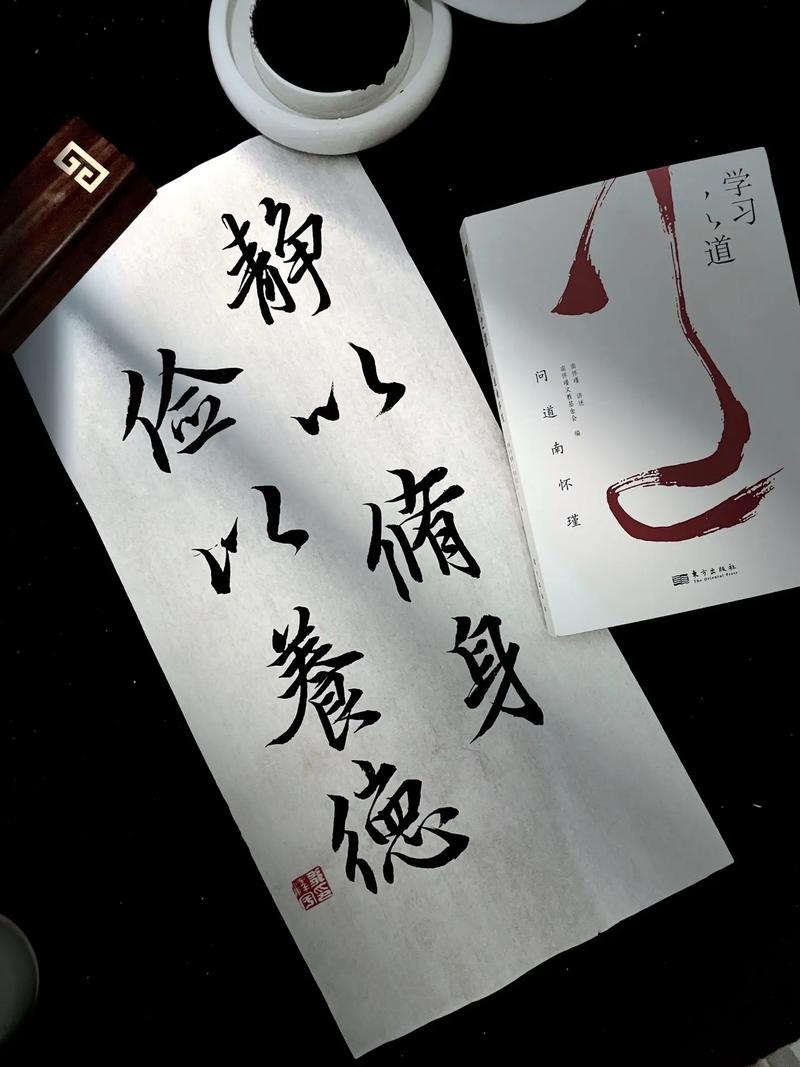 静以脩身
俭以養德
学习
道
南怀瑾 讲述
南怀瑾文教基金会 编
问道南怀瑾
東方出版社
The Oriental Press